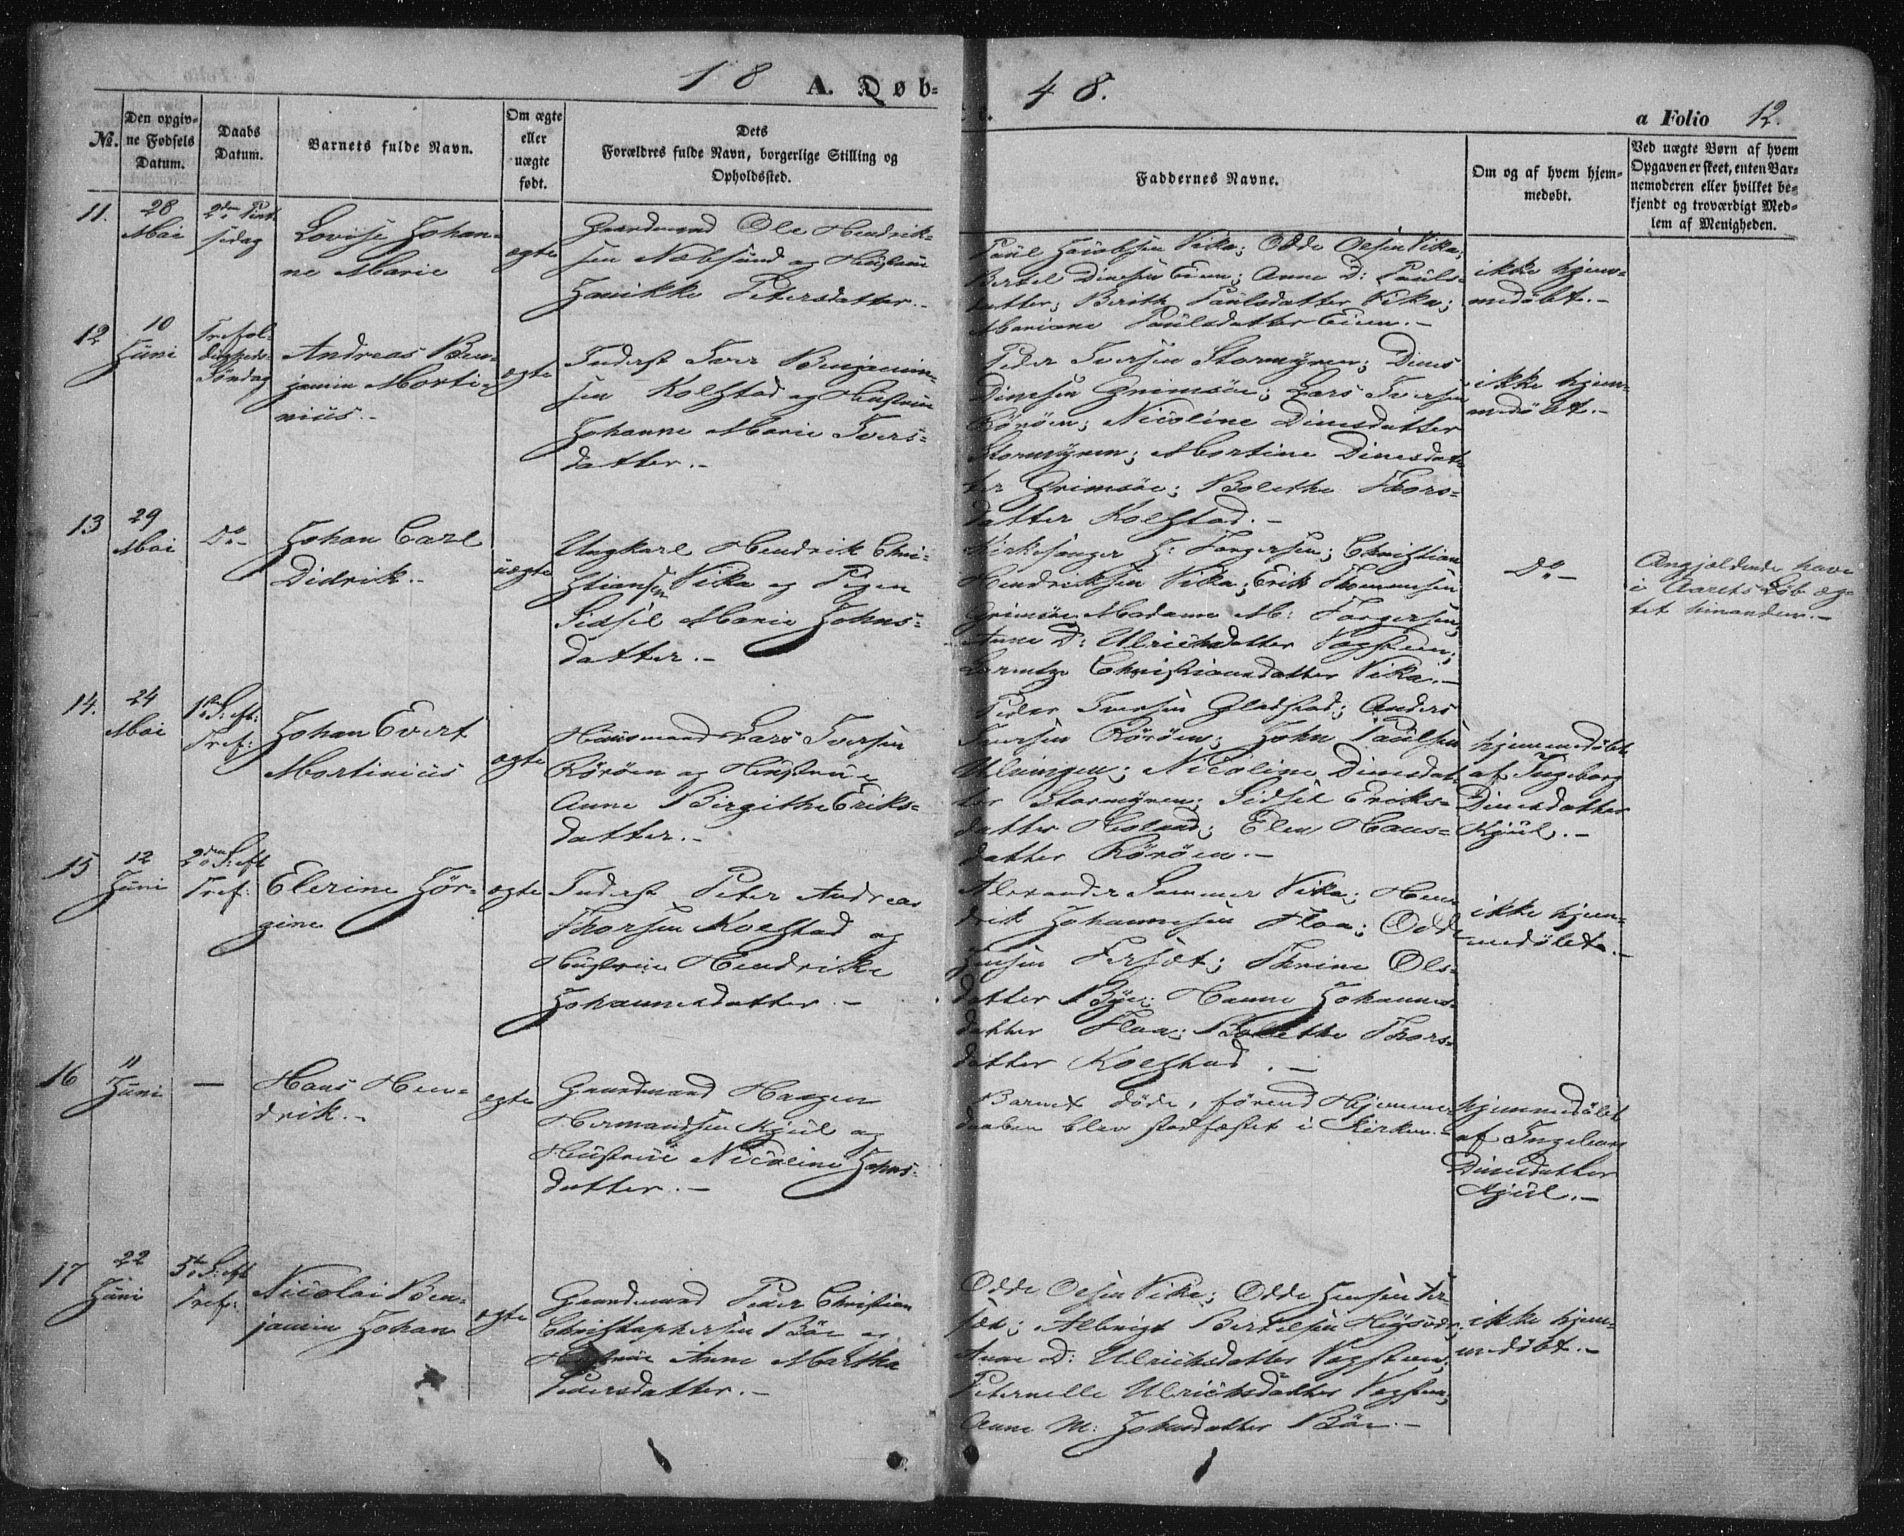 18 A. Døb-
t. 48.
a Folio 12.
No.
Den opgiv-
ne Fødsels
Datum.
Daabs
Datum.
Barnets fulde Navn.
Om ægte
eller
uægte
født.
Dets
Forældres fulde Navn, borgerlige Stilling og
Opholdssted.
Faddernes Navne.
Om og af hvem hjem-
medøbt.
Ved uægte Børn af hvem
Opgaven er skeet, enten Bar-
nemoderen eller hvilket be-
kjendt og troværdigt Med-
lem af Menigheden.
11.
28
Mai
2den Pint
sedag
Lovise Johan-
ne Marie
ægte
Gaardmand Ole Hendrik-
sen Næbsund og Hustrue
Janikke Petersdatter.-
Paul Jacobsen Vika; Odde Olsen Vika;
Bertel Dinesen Eien; Anne D: Pauls-
datter; Berith Paulsdatter Vika;
Mariane Paulsdatter Eien.-
ikke hjem-
medøbt.-
12
10
Juni
Trefol-
digheds-
Søndag
Andreas Ben-
jamin Morti-
nius.-
ægte
Inderst Iver Benjamin-
sen Kolstad og Hustrue
Johanne Marie Ivers-
datter.-
Peder Iversen Stormyren; Dines
Dinesen Grimsøe; Lars Iversen
Rörøen; Nicoline Dinesdatter
Stormyren; Mortine Dinesdat-
ter Grimsøe; Bolethe Thors-
datter Kolstad.-
ikke hjem-
medøbt.-
13
29
Mai
Do-
Johan Carl
Didrik.-
uægte
Ungkarl Hendrik Chri-
stiansen Vika og Pigen
Sidsel Marie Johns-
datter.-
Kirkesanger J: Torgersen; Christian
Hendriksen Vika; Erik Thommesen
Grimsøe; Madame M: Torgersen;
Anne D: Ulrichsdatter Vogsteen;
Lorentze Christiansdatter Vika.-
Do-
Angjeldende have
i Aarets Løb æg-
tet hinanden.-
14.
24
Mai
1ste S: eft:
Tref:
Johan Evert
Mortinius
ægte
Huusmand Lars Iversen
Rörøen og Hustrue
Anne Birgithe Eriks-
datter.-
Peder Iversen Gladstad; Anders
Iversen Rörøen; John Paulsen
Ulvingen; Nicoline Dinesdat-
ter Stormyren; Sidsel Eriks-
datter Hesund; Elen Hans-
datter Rörøen.-
hjemmedøbt
af Ingeborg
Dinesdatter
Kjul.-
15
12
Juni
2den S: eft
Tref:
Elerine Jør-
gine
ægte
Inderst Peter Andreas
Thorsen Kolstad og
Hustrue Hendrikke
Johannesdatter.-
Alexander Sommer Vika; Hen-
drik Johannesen Floa; Odde
Jensen Forsæt; Thrine Ols-
datter Bøe; Hanne Johannes-
datter Floa; Bolethe Thors-
datter Kolstad.-
ikke hjem-
medøbt.-
16
11
Juni
-
Hans Hen-
drik.-
ægte
Gaardmand Haagen
Hermandsen Kjul og
Hustrue Nicoline Johns-
datter.-
Barnet døde, førend Hjemme-
daaben blev stadfæstet i Kirken.-
hjemmedøbt
af Ingeborg
Dinesdatter
Kjul.-
17
22
Juni
5te S: eft
Tref:
Nicolai Ben-
jamin Johan
ægte
Gaardmand Peder Christian
Christophersen Böe og
Hustrue Anne Martha
Pedersdatter.-
Odde Olsen Vika; Odde Jensen For-
sæt; Albrigt Bertelsen Høisvær;
Anne D: Ulrichsdatter Vogsteen;
Peternelle Ulrichsdatter Vogsteen;
Anne M: Johnsdatter Böe.-
ikke hjem-
medøbt.-